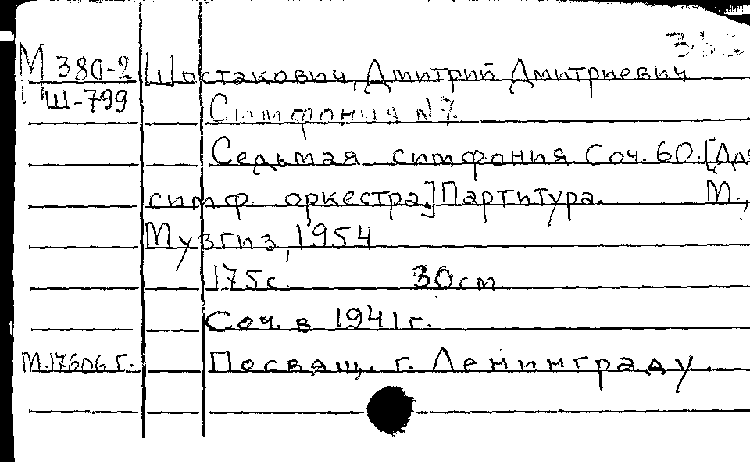 М 380-2 Шостакович, Дмитрий Дмитриевич
Ш-799
Симфония №7.
Седьмая симфония Соч. 60. [Для
симф. оркестра.] Партитура. М.,
Музгиз, 1954
175с. 30см
Соч. в 1941 г.
М.17606 г. Посвящ. г. Ленинграду.